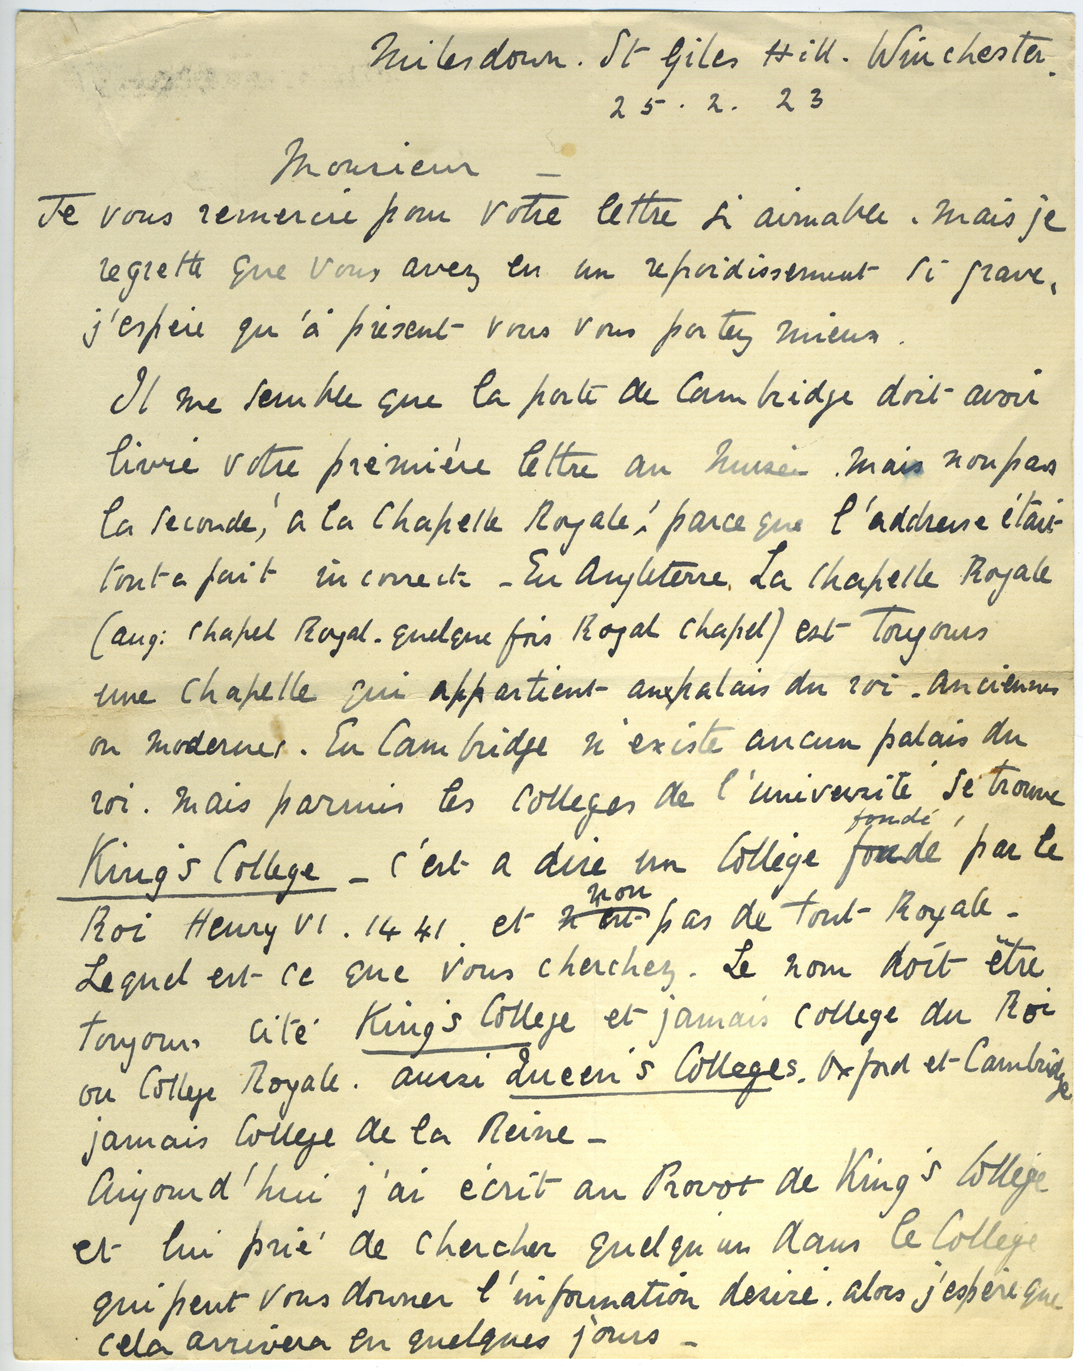 Milesdown. St Giles Hill. Winchester.
25. 2. 23
Monsieur –
Je vous remercie pour votre lettre si aimable. Mais je
regrette que vous avez eu un refroidissement si grave,
j'espère qu'à present vous vous portez mieux.
Il me semble que la poste de Cambridge doit avoir
livré votre première lettre au Musée. Mais non pas
la seconde, 'a la Chapelle Royale', parce que l'addresse était
tout a fait incorrecte – En Angleterre. La Chapelle Royale
(ang: Chapel Royal. quelque fois Royal Chapel) est toujours
une chapelle qui appartient aux palais du roi. anciennes
ou modernes. En Cambridge n'existe aucun palais du
roi. Mais parmis les Colleges de l'université se trouve
King's College – C'est a dire un College fondé fondé par le
Roi Henry VI. 1441. et n'est non pas de tout Royale –
Lequel est ce que vous cherchez. Le nom doît être
toujours cité King's College et jamais College du Roi
ou College Royale. aussi Queen's Colleges. Oxford et Cambridge
jamais College de la Reine –
Aujourd'hui j'ai écrit au Provot de King's College
et lui prié de chercher quelqu'un dans le College
qui peut vous donner l'information desiré. alors j'espère que
cela arrivera en quelques jours –